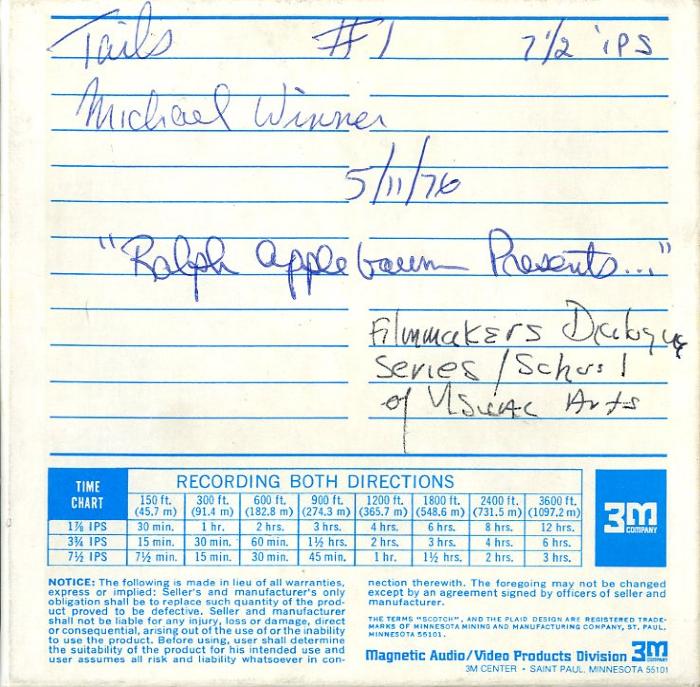 Tails #1 7 1/2 IPS
Michael Winner
5/11/76
"Ralph Applebaum Presents..."
Filmmakers Dialogue
Series/School
of Visual Arts
TIME CHART RECORDING BOTH DIRECTIONS
150 ft. 300 ft. 600 ft. 900 ft. 1200 ft. 1800 ft. 2400 ft. 3600 ft.
(45.7 m) (91.4 m) (182.8 m) (274.3 m) (365.7 m) (548.6 m) (731.5 m) (1097.2 m)
1⅞ IPS 30 min. 1 hr. 2 hrs. 3 hrs. 4 hrs. 6 hrs. 8 hrs. 12 hrs.
3¾ IPS 15 min. 30 min. 60 min. 1½ hrs. 2 hrs. 3 hrs. 4 hrs. 6 hrs.
7½ IPS 7½ min. 15 min. 30 min. 45 min. 1 hr. 1½ hrs. 2 hrs. 3 hrs.
3M
COMPANY
NOTICE: The following is made in lieu of all warranties,
express or implied: Seller's and manufacturer's only
obligation shall be to replace such quantity of the prod-
uct proved to be defective. Seller and manufacturer
shall not be liable for any injury, loss or damage, direct
or consequential, arising out of the use of or the inability
to use the product. Before using, user shall determine
the suitability of the product for his intended use and
user assumes all risk and liability whatsoever in con-
nection therewith. The foregoing may not be changed
except by an agreement signed by officers of seller and
manufacturer.
THE TERMS "SCOTCH", AND THE PLAID DESIGN ARE REGISTERED TRADE-
MARKS OF MINNESOTA MINING AND MANUFACTURING COMPANY, ST. PAUL,
MINNESOTA 55101.
Magnetic Audio/Video Products Division 3M COMPANY
3M CENTER • SAINT PAUL, MINNESOTA 55101